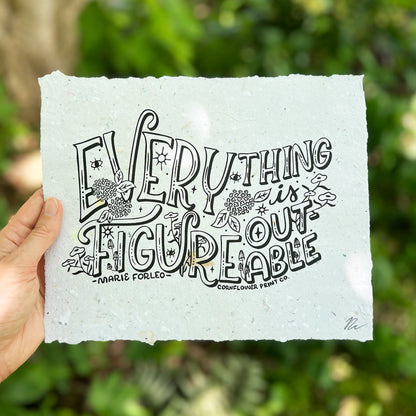 EVERYTHING
is
FIGURE OUT-
ABLE
-MARIE FORLEO-
CORNFLOWER PRINT CO.